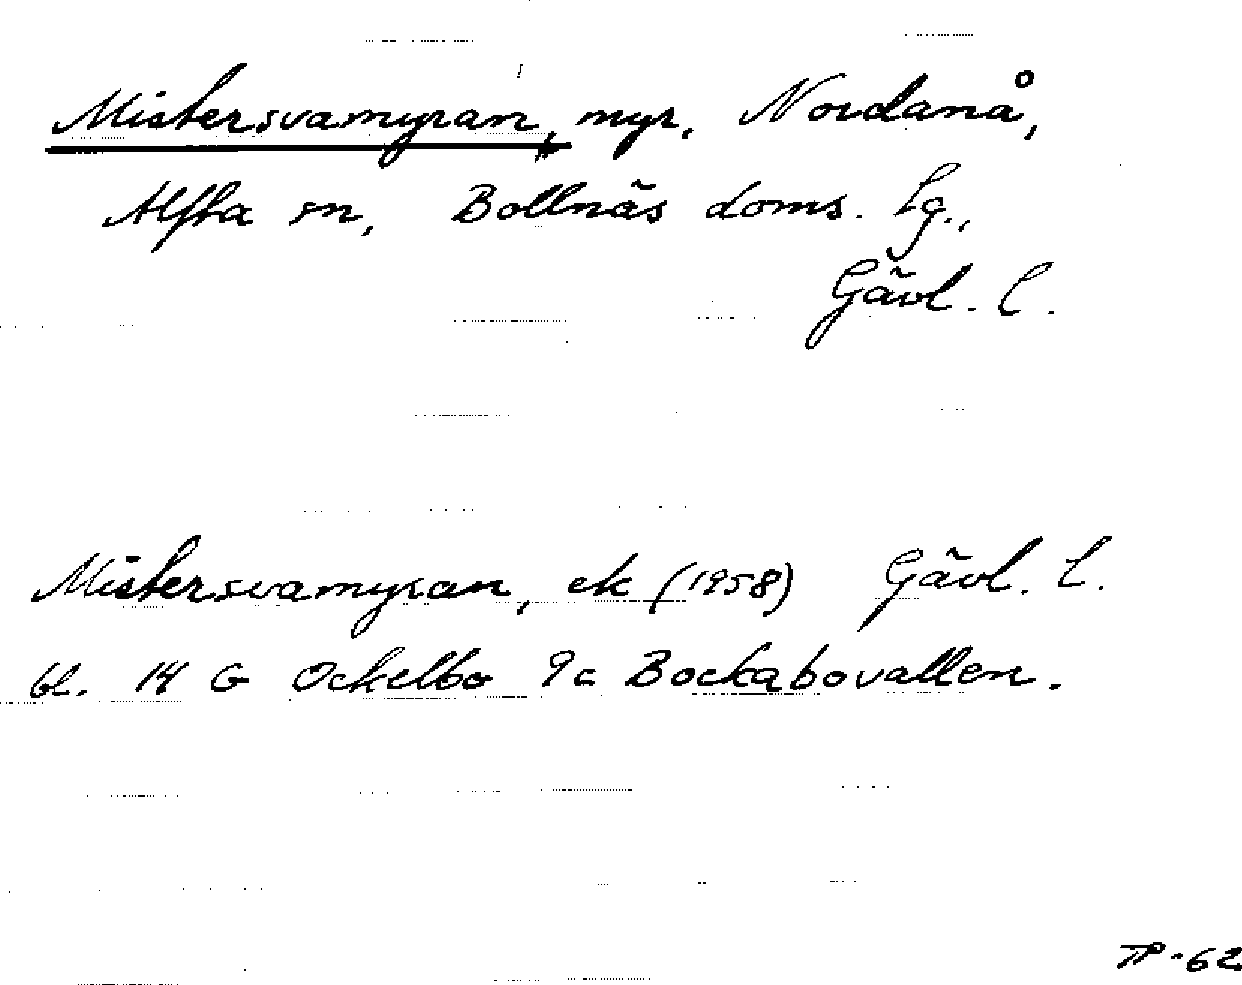 Mistersvamyran, myr, Nordanå,
Alfta sn, Bollnäs doms. lg.,
Gävl. l.
Mistersvamyran, ek (1958) Gävl. l.
bl. 14 G Ockelbo 9c Bockabovallen.
TP-62